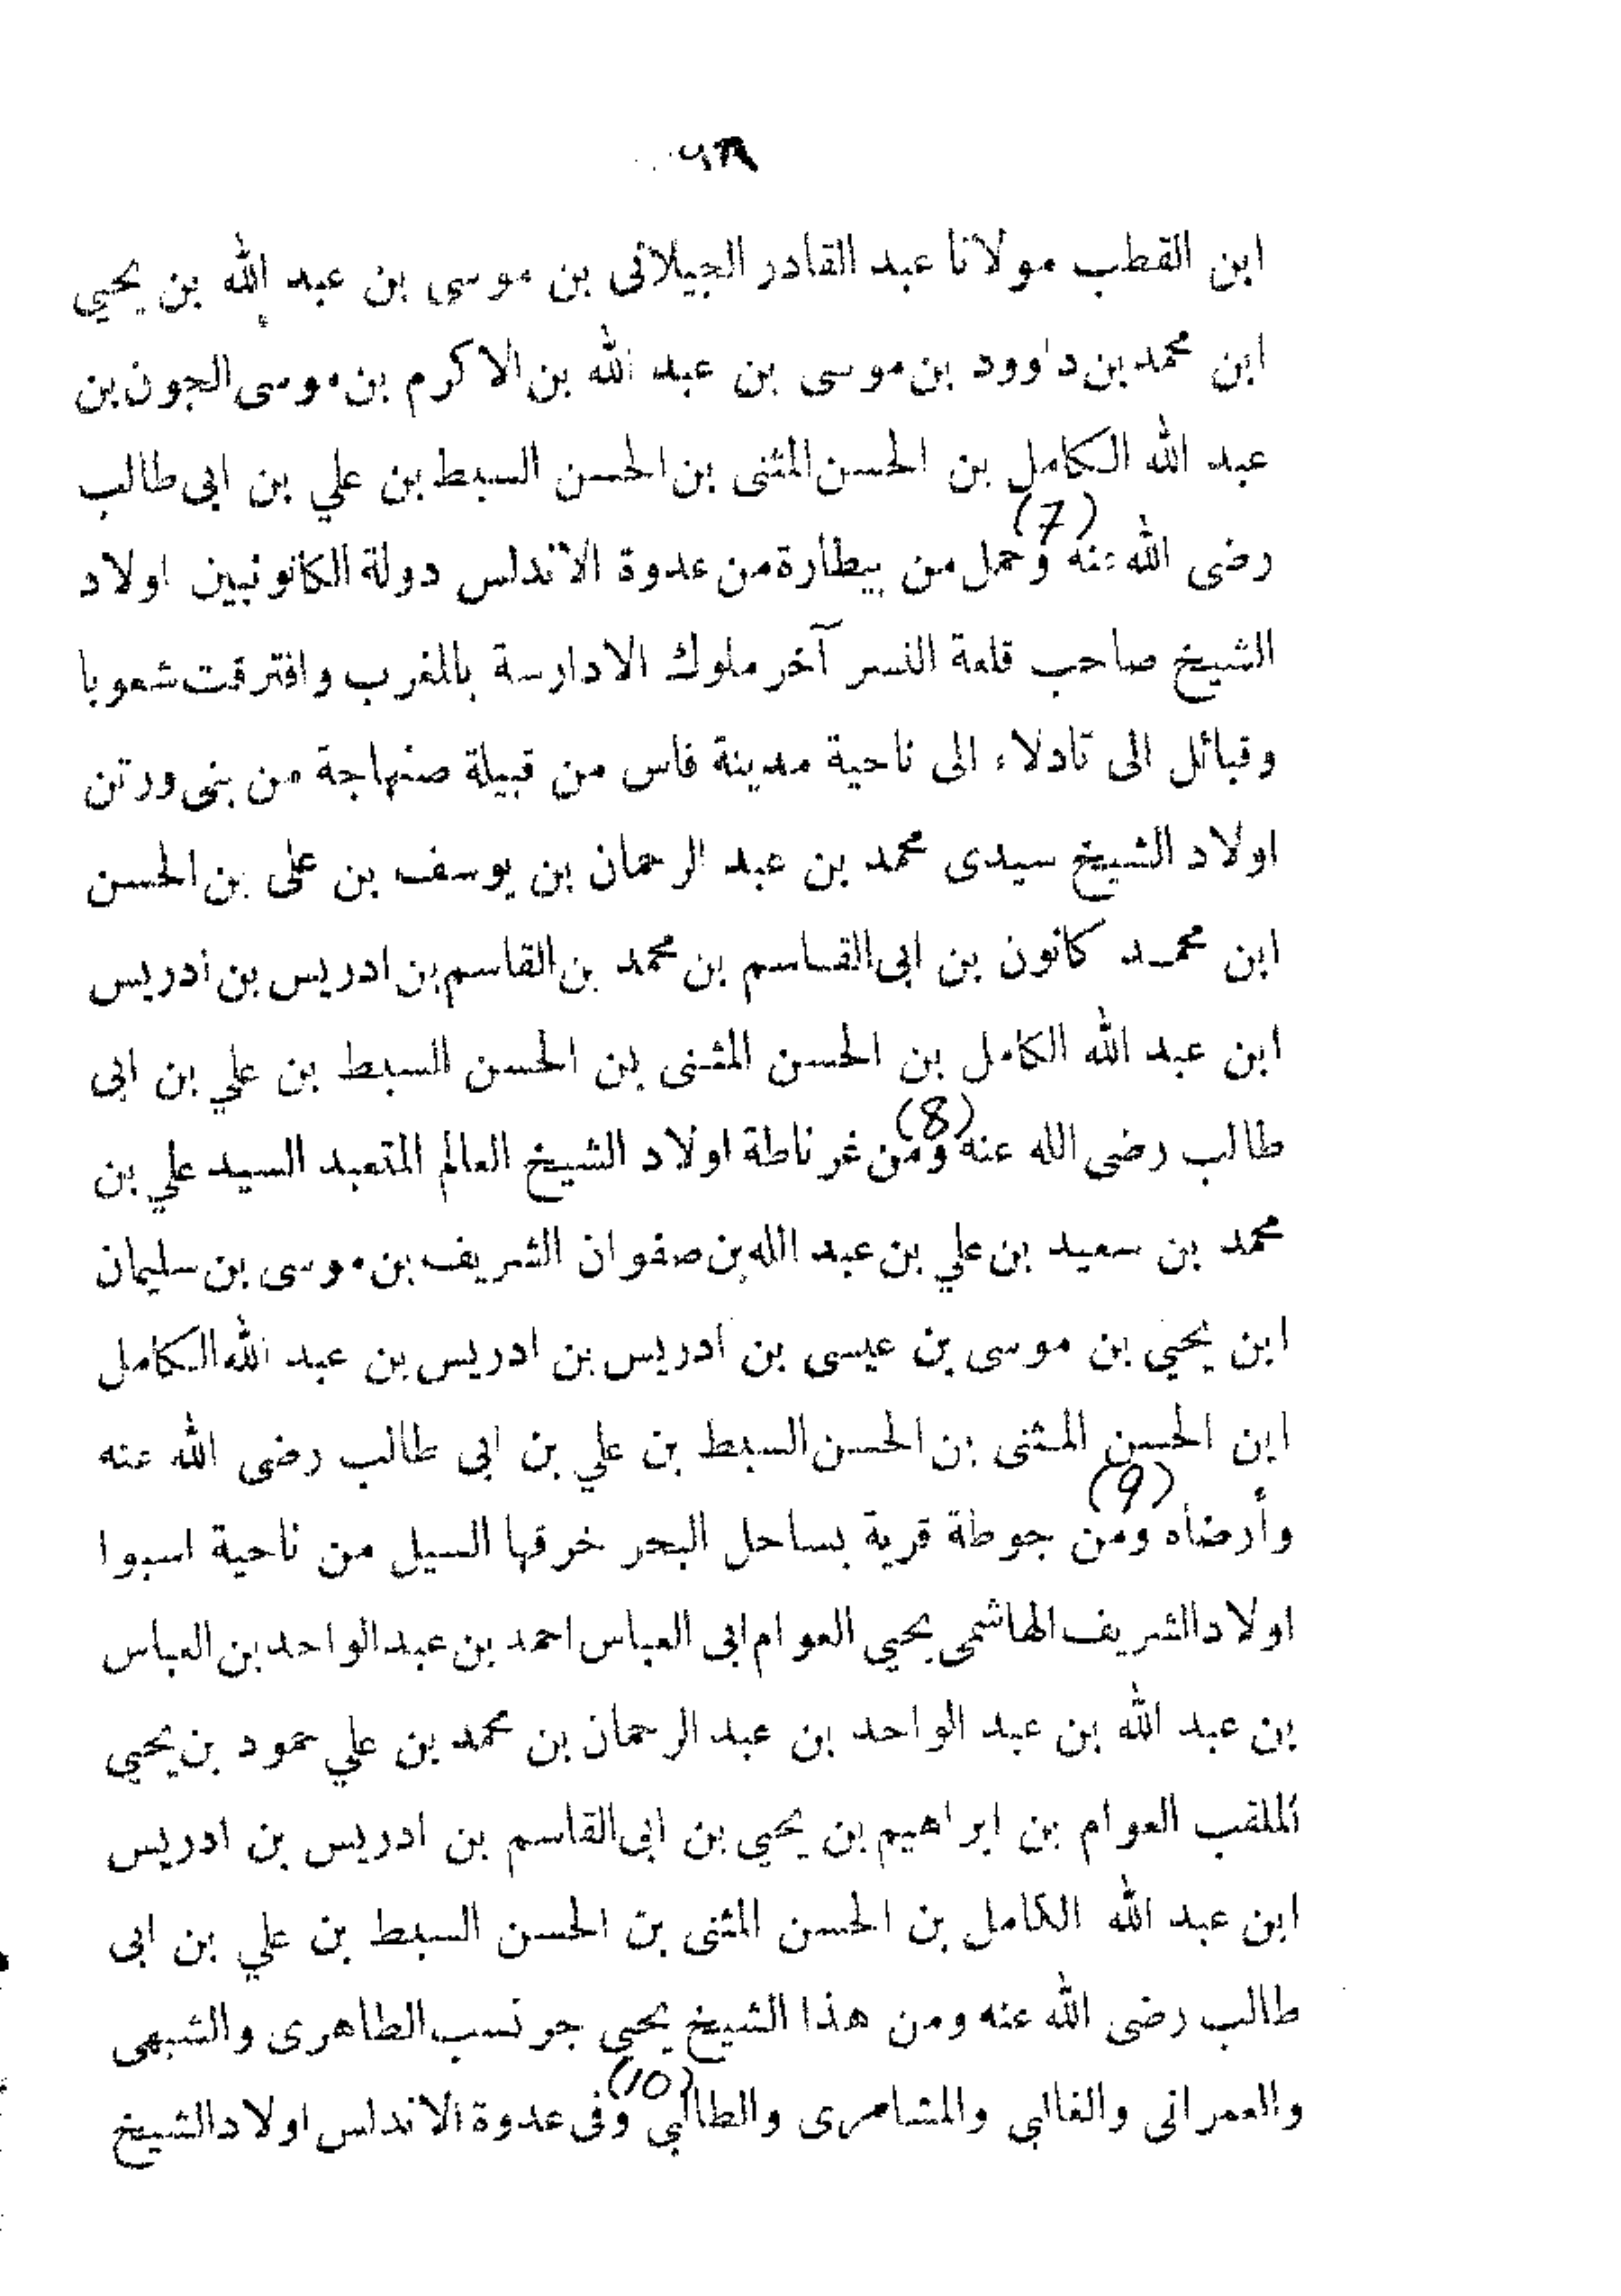 ابن القطب مولانا عبد القادر الجيلانى بن موسى بن عبد الله بن يحيي
ابن محمد بن داوود بن موسى بن عبد الله بن الاكرم بن موسى الجون بن
عبد الله الكامل بن الحسن المثنى بن الحسن السبط بن علي بن ابى طالب
رضى الله عنه (7) وحمل من بيطارة من عدوة الاندلس دولة الكانونيين اولاد
الشيخ صاحب قلعة النسر آخر ملوك الادارسة بالمغرب وافترقت شعوبا
وقبائل الى تادلاء الى ناحية مدينة فاس من قبيلة صنهاجة من بنى ورتن
اولاد الشيخ سيدى محمد بن عبد الرحمان بن يوسف بن على بن الحسن
ابن محمد كانون بن ابى القاسم بن محمد بن القاسم بن ادريس بن ادريس
ابن عبد الله الكامل بن الحسن المثنى بن الحسن السبط بن علي بن ابى
طالب رضى الله عنه (8) ومن غرناطة اولاد الشيخ العالم المتعبد السيد علي بن
محمد بن سعيد بن علي بن عبد الله بن صفوان الشريف بن موسى بن سليمان
ابن يحيي بن موسى بن عيسى بن ادريس بن ادريس بن عبد الله الكامل
ابن الحسن المثنى بن الحسن السبط بن علي بن ابى طالب رضى الله عنه
وأرضاه (9) ومن جوطة قرية بساحل البحر خرقها السيل من ناحية اسبوا
اولاد الشريف الهاشمى يحيي العوام ابى العباس احمد بن عبد الواحد بن العباس
بن عبد الله بن عبد الواحد بن عبد الرحمان بن محمد بن علي حمود بن يحيي
الملقب العوام بن ابراهيم بن يحيي بن ابى القاسم بن ادريس بن ادريس
ابن عبد الله الكامل بن الحسن المثنى بن الحسن السبط بن علي بن ابى
طالب رضى الله عنه ومن هذا الشيخ يحيي جر نسب الطاهرى والشبهى
والعمرانى والغالبي والمشامرى والطالبي (10) وفى عدوة الاندلس اولاد الشيخ